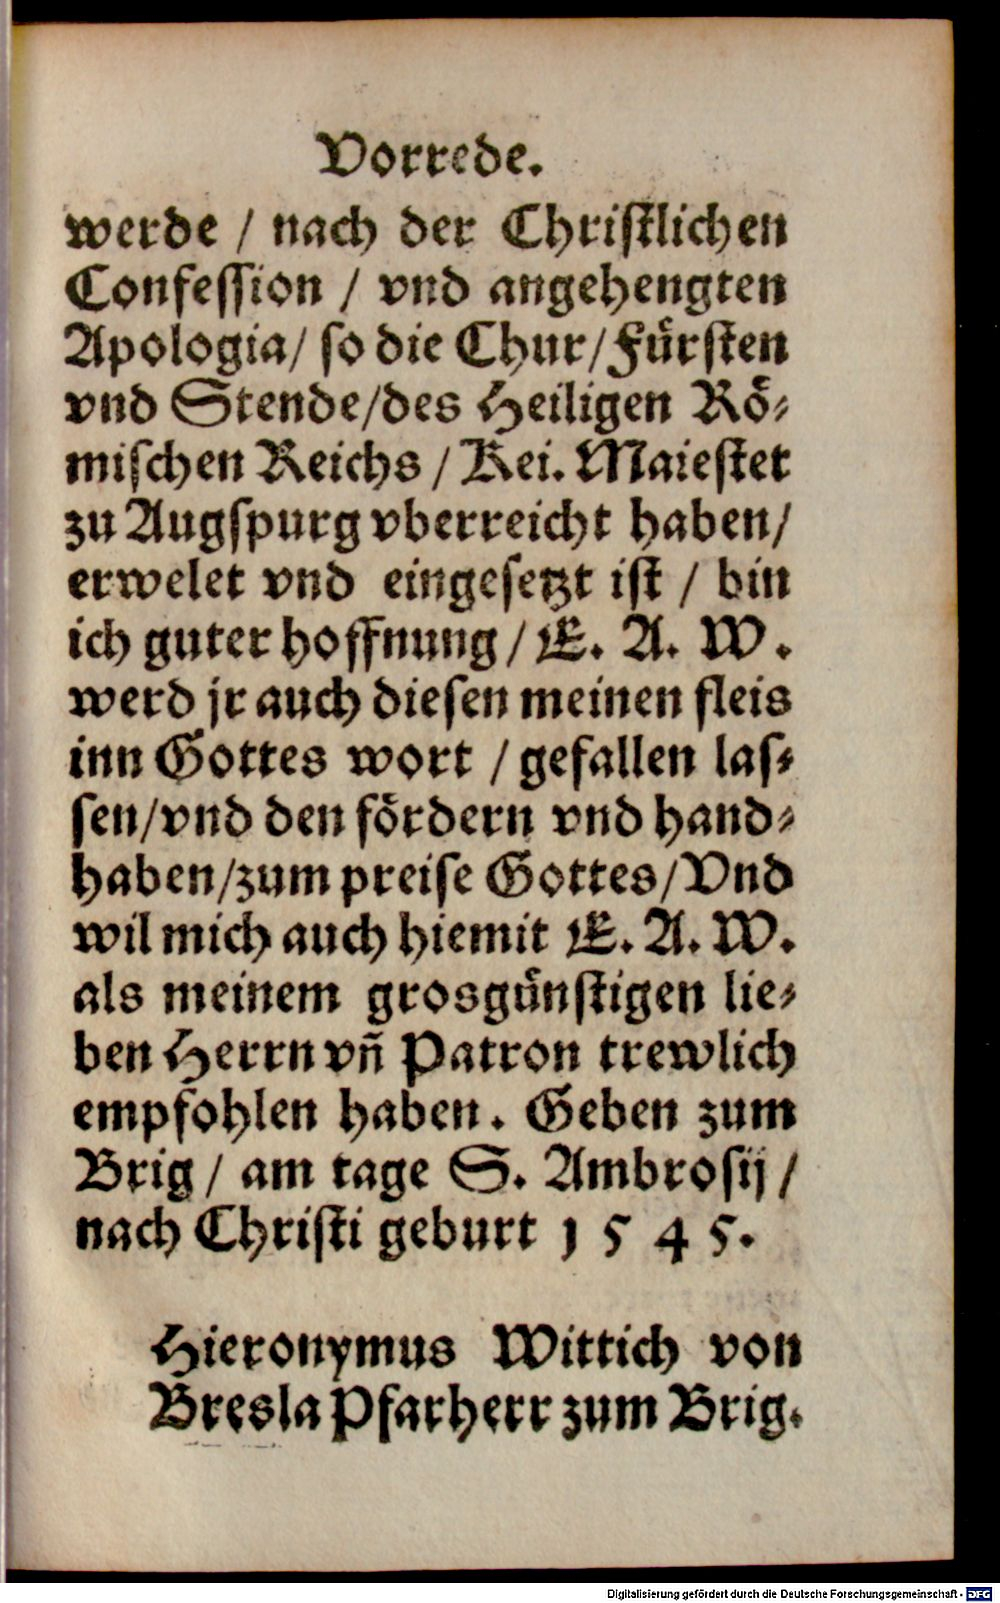 Vorrede.
werde / nach der Chriſtlichen
Confeſſion / vnd angehengten
Apologia/ ſo die Chur/Fürſten
vnd Stende/des Heiligen Rö⸗
miſchen Reichs / Kei. Maieſtet
zu Augſpurg vberreicht haben/
erwelet vnd eingeſetzt iſt / bin
ich guter hoffnung / E. A. W.
werd jr auch dieſen meinen fleis
inn Gottes wort / gefallen laſ⸗
ſen/vnd den fördern vnd hand⸗
haben/zum preiſe Gottes/Vnd
wil mich auch hiemit E. A. W.
als meinem grosgünſtigen lie⸗
ben Herrn vñ Patron trewlich
empfohlen haben. Geben zum
Brig / am tage S. Ambroſij /
nach Chriſti geburt 1 5 4 5.
Hieronymus Wittich von
Breſla Pfarherr zum Brig.
Digitalisierung gefördert durch die Deutsche Forschungsgemeinschaft - DFG